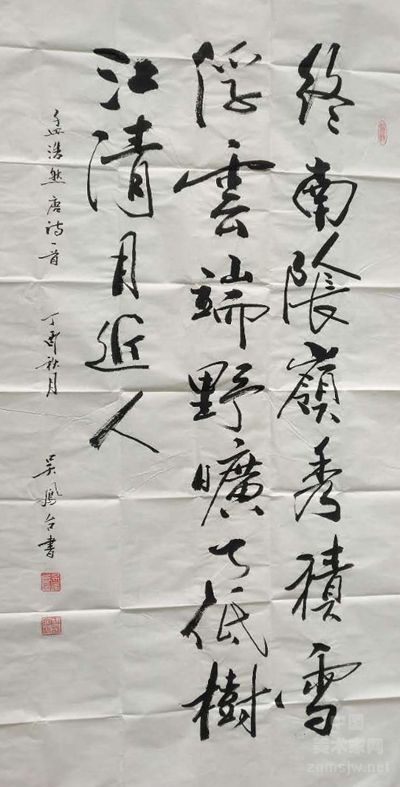 終南陰嶺秀積雪
浮雲端野曠天低樹
江清月近人
孟浩然唐詩一首 丁酉秋月 吳鳳台書
中国
美术家网
zgmsjw.net